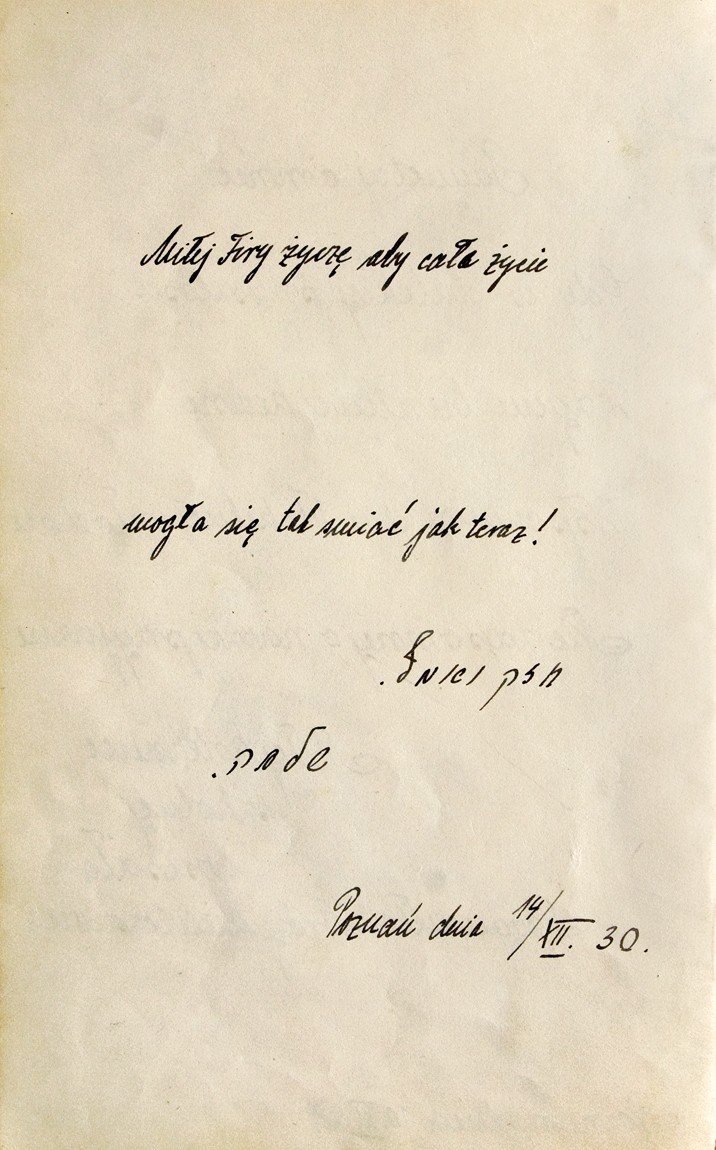 Miłej Firy życzę aby całe życie
mogła się tak śmiać jak teraz!
חזק ואמץ.
שלמה.
Poznań dnia 14/XII. 30.